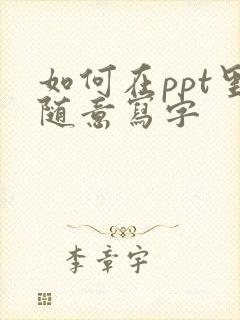 如何在ppt里
随意寫字
李章宇